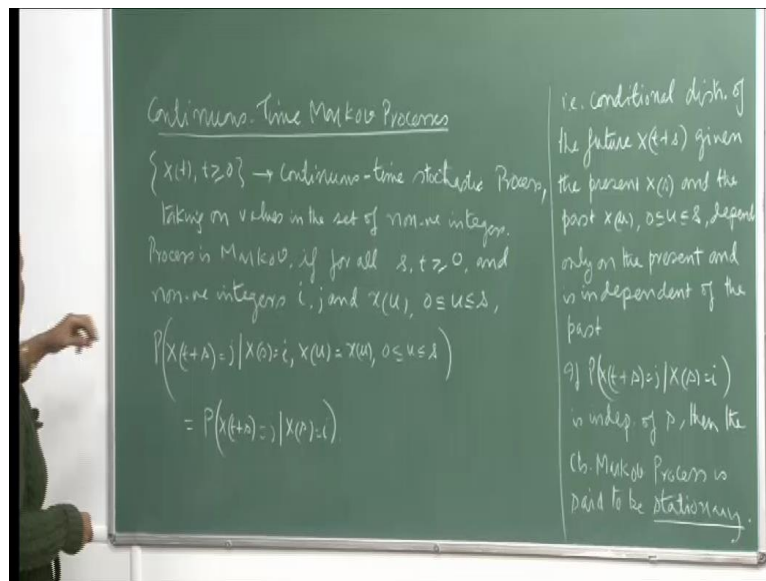 Continuous-Time Markov Processes
{X(t), t ≥ 0} → Continuous-time stochastic Process,
taking on values in the set of non-ve integers.
Process is Markov, if for all s, t ≥ 0, and
non-ve integers i, j and x(u), 0 ≤ u ≤ s,
P(X(t+s)=j | X(s)=i, X(u)=x(u), 0 ≤ u ≤ s)
= P(X(t+s)=j | X(s)=i).
i.e. conditional distn. of
the future X(t+s) given
the present X(s) and the
past X(u), 0 ≤ u ≤ s, depend
only on the present and
is independent of the
past
If P(X(t+s)=j | X(s)=i)
is indep. of s, then the
Ct. Markov Process is
said to be stationary.